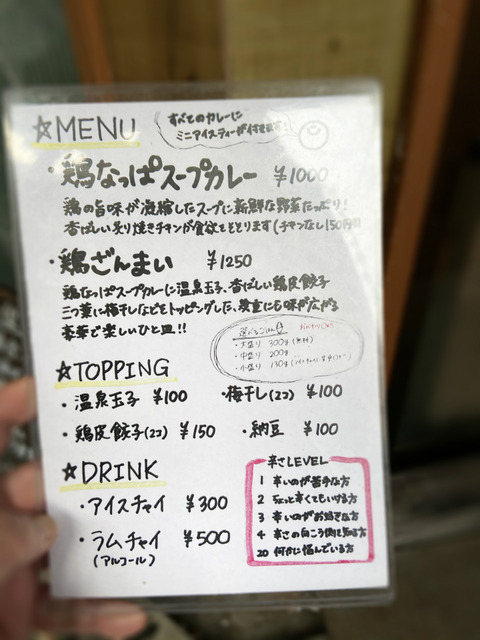 ☆MENU
すべてのカレーに
ミニアイスティーが付きます!
・鶏なっぱスープカレー ¥1000
鶏の旨味が凝縮したスープに新鮮な野菜たっぷり!
香ばしい炙り焼きチキンが食欲をそそります(チキンなし150円引
・鶏ざんまい ¥1250
鶏なっぱスープカレーに温泉玉子、香ばしい鶏皮餃子
三つ葉に梅干しなどをトッピングした、幾重にも味が広がる
豪華で楽しいひと皿!!
選べるごはん量
・大盛り 300g(無料)
・中盛り 200g
・小盛り 130g
☆TOPPING
・温泉玉子 ¥100 ・梅干し(2コ) ¥100
・鶏皮餃子(2コ) ¥150 ・納豆 ¥100
☆DRINK
・アイスチャイ ¥300
・ラムチャイ ¥500
(アルコール)
辛さLEVEL
1 辛いのが苦手な方
2 ちょっと辛くてもいける方
3 辛いのがお好きな方
4 辛さの向こう側を知る方
20 何かに悩んでいる方